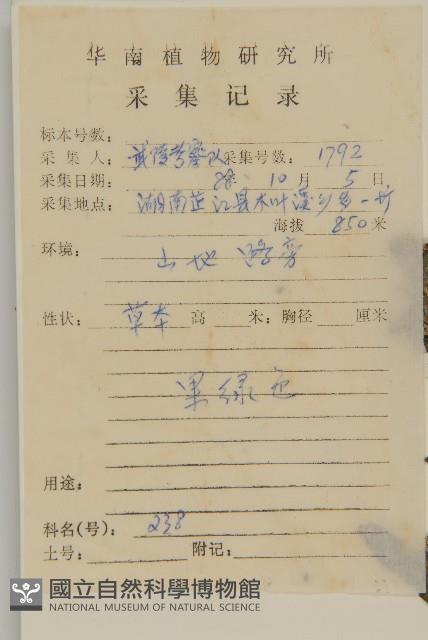 华南植物研究所
采集记录
标本号数:
采集人: 武陵考察队 采集号数: 1792
采集日期: 88年 10月 5日
采集地点: 湖南芷江县木叶溪乡
海拔 850 米
环境: 山地 路旁
性状: 草本 高 米; 胸径 厘米
果绿色
用途:
科名(号): 238
土号: 附记:
國立自然科學博物館
NATIONAL MUSEUM OF NATURAL SCIENCE